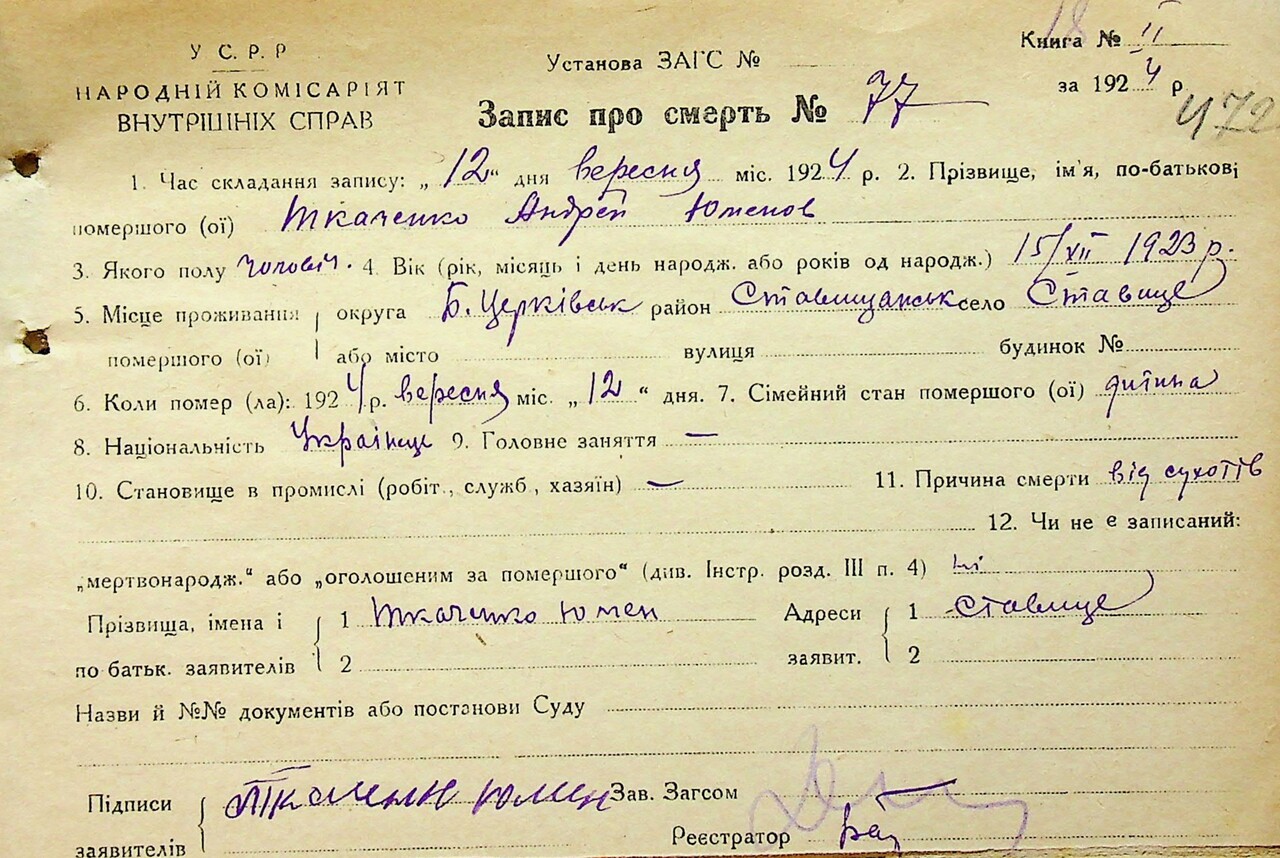 У С. Р. Р
НАРОДНІЙ КОМІСАРІЯТ
ВНУТРІШНІХ СПРАВ
Установа ЗАГС №
Книга № II
за 1924 р
Запис про смерть № 77
472
1. Час складання запису: „ 12 “ дня вересня міс. 1924 р. 2. Прізвище, ім'я, по-батькові
помершого (ої) Ткаченко Андрей Юменов
3. Якого полу чоловіч. 4. Вік (рік, місяць і день народж. або років од народж.) 15/XII 1923 р.
5. Місце проживання округа Б. Церківськ район Ставищанськ село Ставище
помершого (ої) або місто вулиця будинок №
6. Коли помер (ла): 1924 р. вересня міс. „ 12 “ дня. 7. Сімейний стан помершого (ої) дитина
8. Національність Українце 9. Головне заняття —
10. Становище в промислі (робіт., служб., хазяїн) — 11. Причина смерти від сухотів
12. Чи не є записаний:
„мертвонародж.“ або „оголошеним за помершого“ (див. Інстр. розд. III п. 4) ні
Прізвища, імена і 1 Ткаченко Юмен Адреси 1 Ставище
по батьк. заявителів 2 заявит. 2
Назви й №№ документів або постанови Суду
Підписи Ткаченко Юмен Зав. Загсом
заявителів Реєстратор